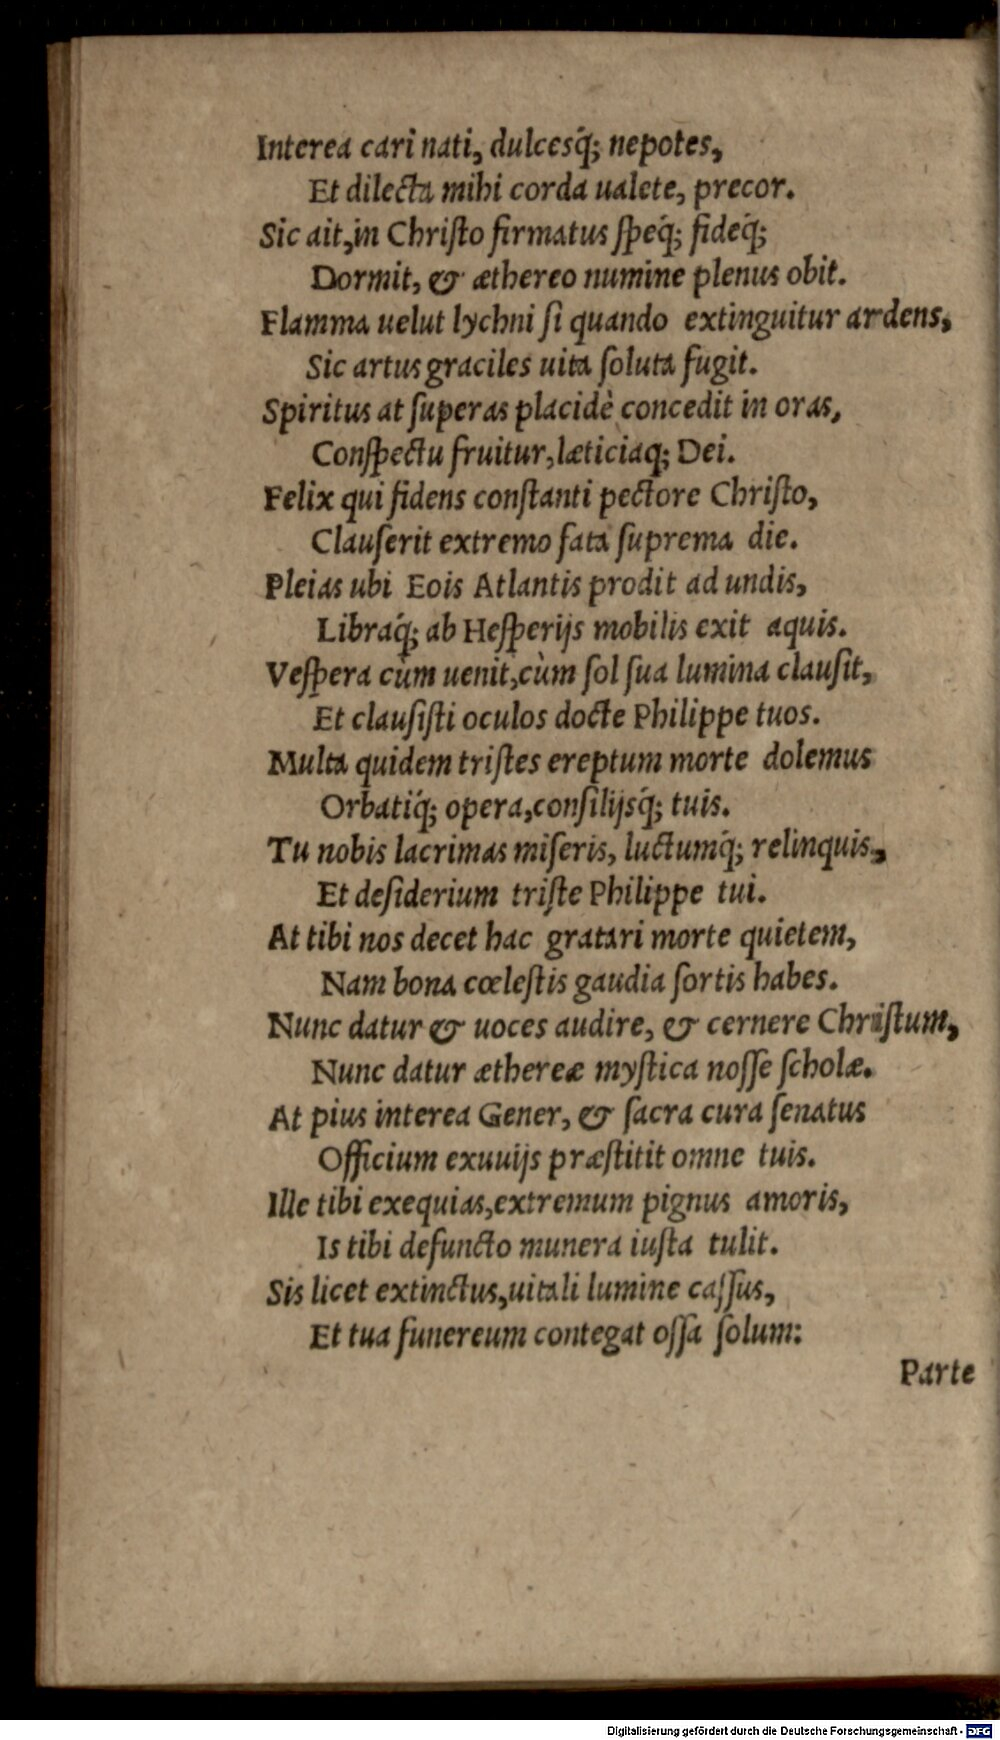 Interea cari nati, dulcesq́; nepotes,
Et dilecta mihi corda ualete, precor.
Sic ait, in Christo firmatus speq́; fideq́;
Dormit, & æthereo numine plenus obit.
Flamma uelut lychni si quando extinguitur ardens,
Sic artus graciles uita soluta fugit.
Spiritus at superas placidè concedit in oras,
Conspectu fruitur, læticiaq; Dei.
Felix qui fidens constanti pectore Christo,
Clauserit extremo fata suprema die.
Pleias ubi Eois Atlantis prodit ad undis,
Libraq́; ab Hesperijs mobilis exit aquis.
Vespera cùm uenit, cùm sol sua lumina clausit,
Et clausisti oculos docte Philippe tuos.
Multa quidem tristes ereptum morte dolemus
Orbatiq́; opera, consilijsq́; tuis.
Tu nobis lacrimas miseris, luctumq́; relinquis,
Et desiderium triste Philippe tui.
At tibi nos decet hac gratari morte quietem,
Nam bona cœlestis gaudia sortis habes.
Nunc datur & uoces audire, & cernere Christum,
Nunc datur æthereæ mystica nosse scholæ.
At pius interea Gener, & sacra cura senatus
Officium exuuijs præstitit omne tuis.
Ille tibi exequias, extremum pignus amoris,
Is tibi defuncto munera iusta tulit.
Sis licet extinctus, uitali lumine cassus,
Et tua funereum contegat ossa solum:
Parte
Digitalisierung gefördert durch die Deutsche Forschungsgemeinschaft - DFG